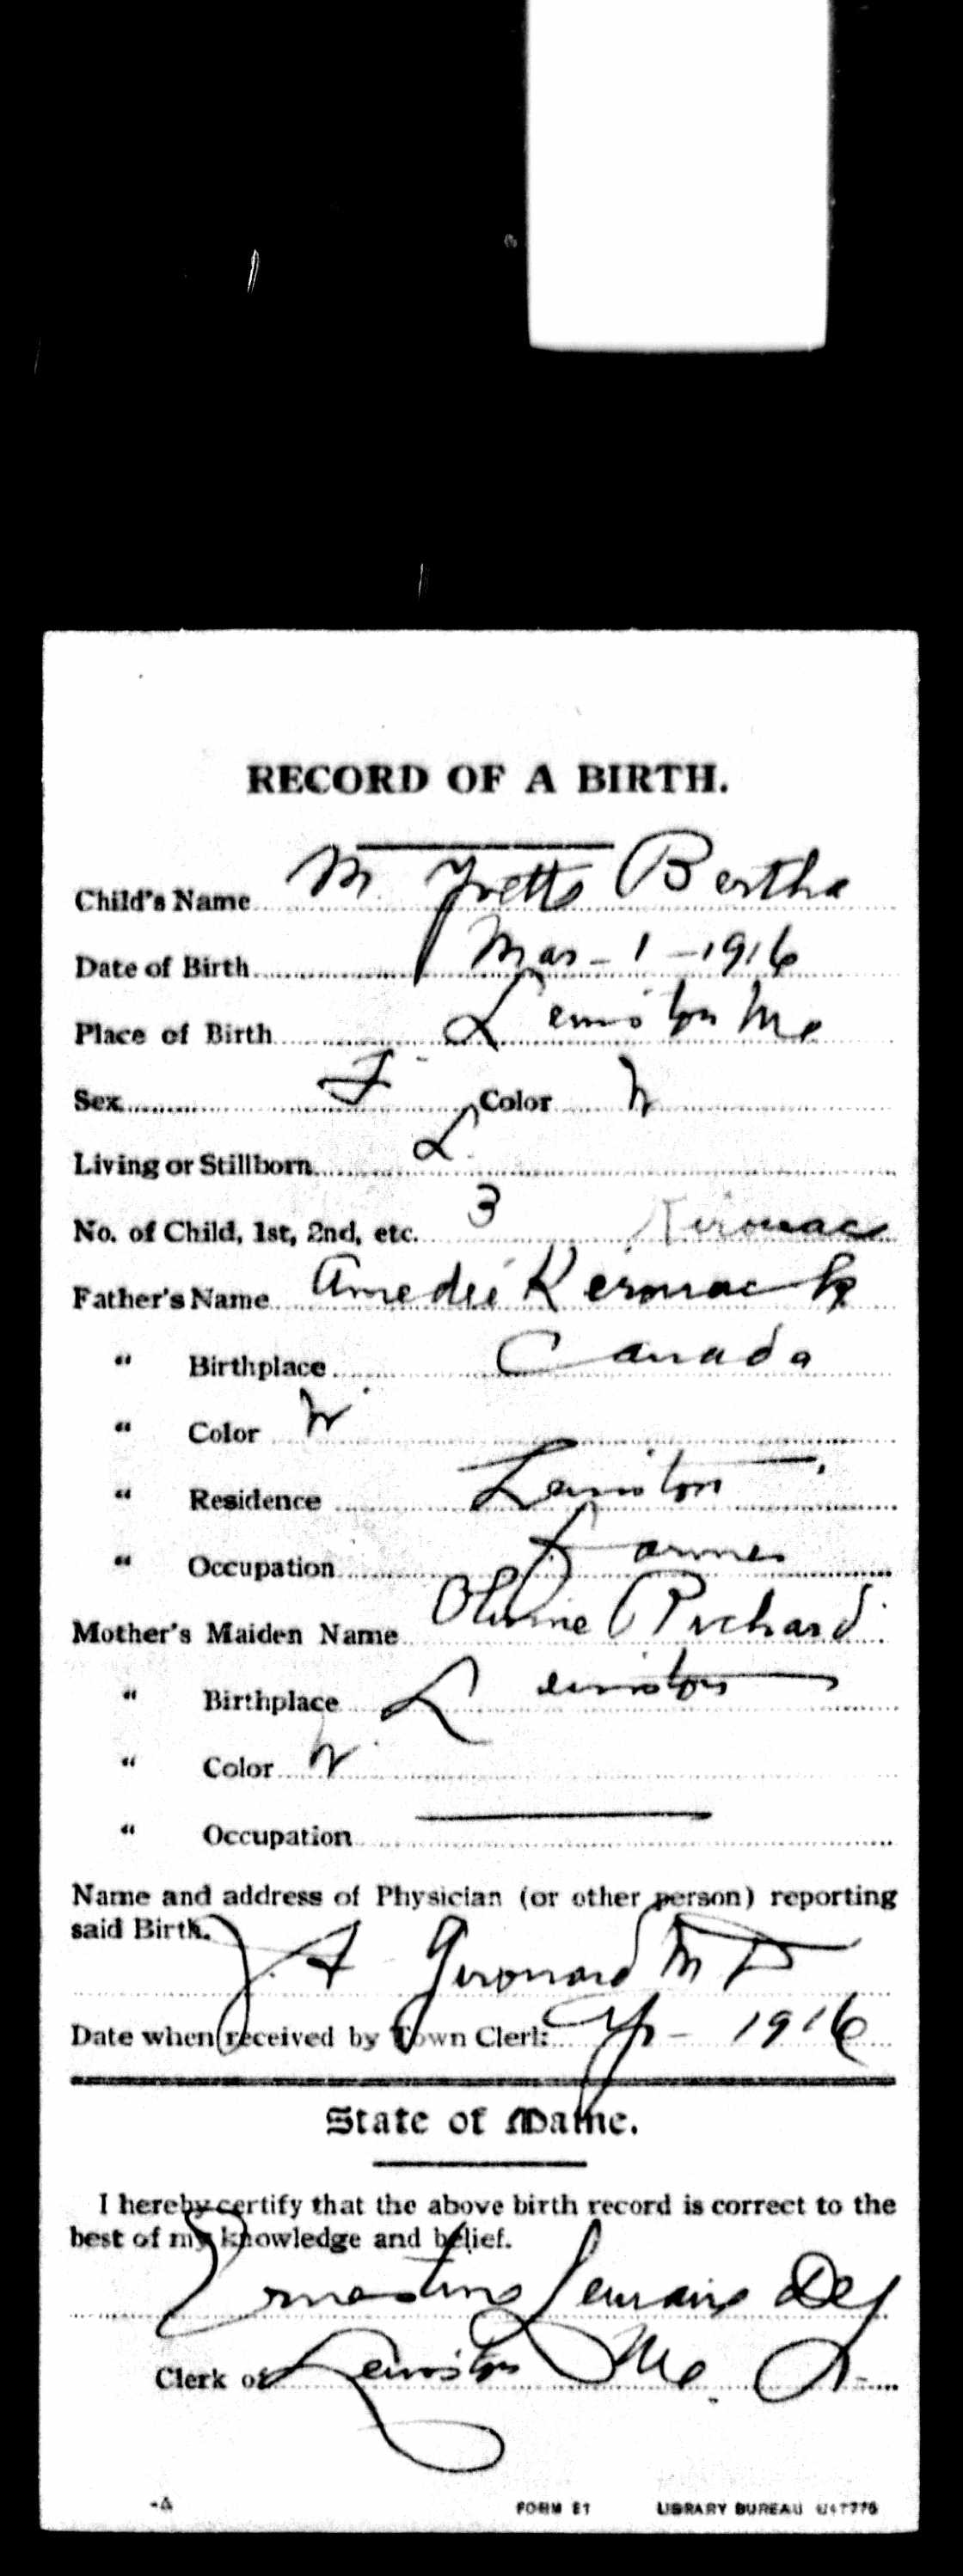 RECORD OF A BIRTH.
Child's Name M Yvette Bertha
Date of Birth Mar - 1 - 1916
Place of Birth Lewiston Me
Sex F Color W
Living or Stillborn L
No. of Child, 1st, 2nd, etc. 3 Kirouac
Father's Name Amedée Kerouack
" Birthplace Canada
" Color W
" Residence Lewiston
" Occupation Farmer
Mother's Maiden Name Olivine Richard
" Birthplace Lewiston
" Color W
" Occupation
Name and address of Physician (or other person) reporting
said Birth.
J. A Girouard M D
Date when received by Town Clerk 1916
State of Maine.
I hereby certify that the above birth record is correct to the
best of my knowledge and belief.
Ernestine Lemaire Dep
Clerk of Lewiston Me.
-A FORM 51 LIBRARY BUREAU U47775